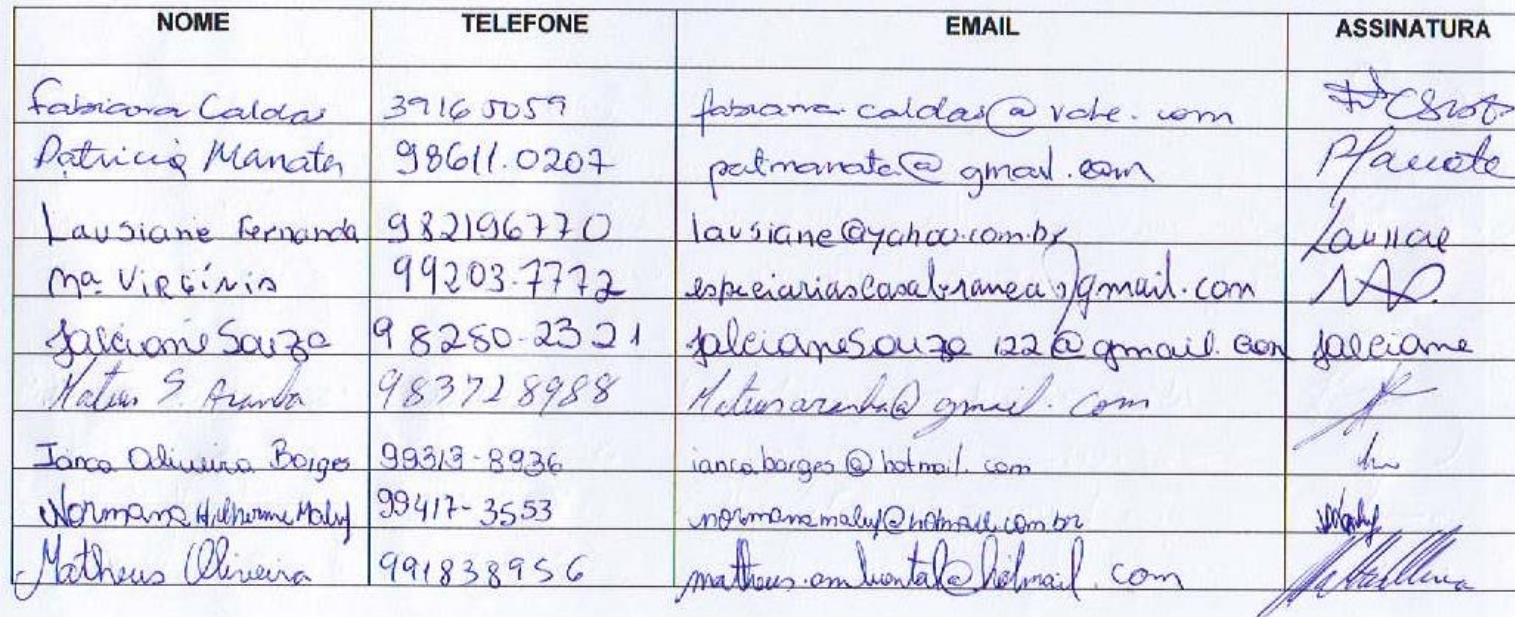 NOME TELEFONE EMAIL ASSINATURA
Fabiana Caldas 39165059 fabiana.caldas@vale.com
Patricia Manata 98611.0207 patmanata@gmail.com PManata
Lausiane Fernanda 982196770 lausiane@yahoo.com.br
Mª VIRGÍNIA 99203-7772 especiariascasabranca@gmail.com
Jalciane Souza 98280-2321 JalcianeSouza122@gmail.com Jalciane
Mateus S. 983728988 @gmail.com
Ianca Oliveira Borges 99313-8936 iancaborges@hotmail.com
Normana Maluf 99417-3553 normanamaluf@hotmail.com.br
Matheus Oliveira 991838956 matheus.ambiental@hotmail.com